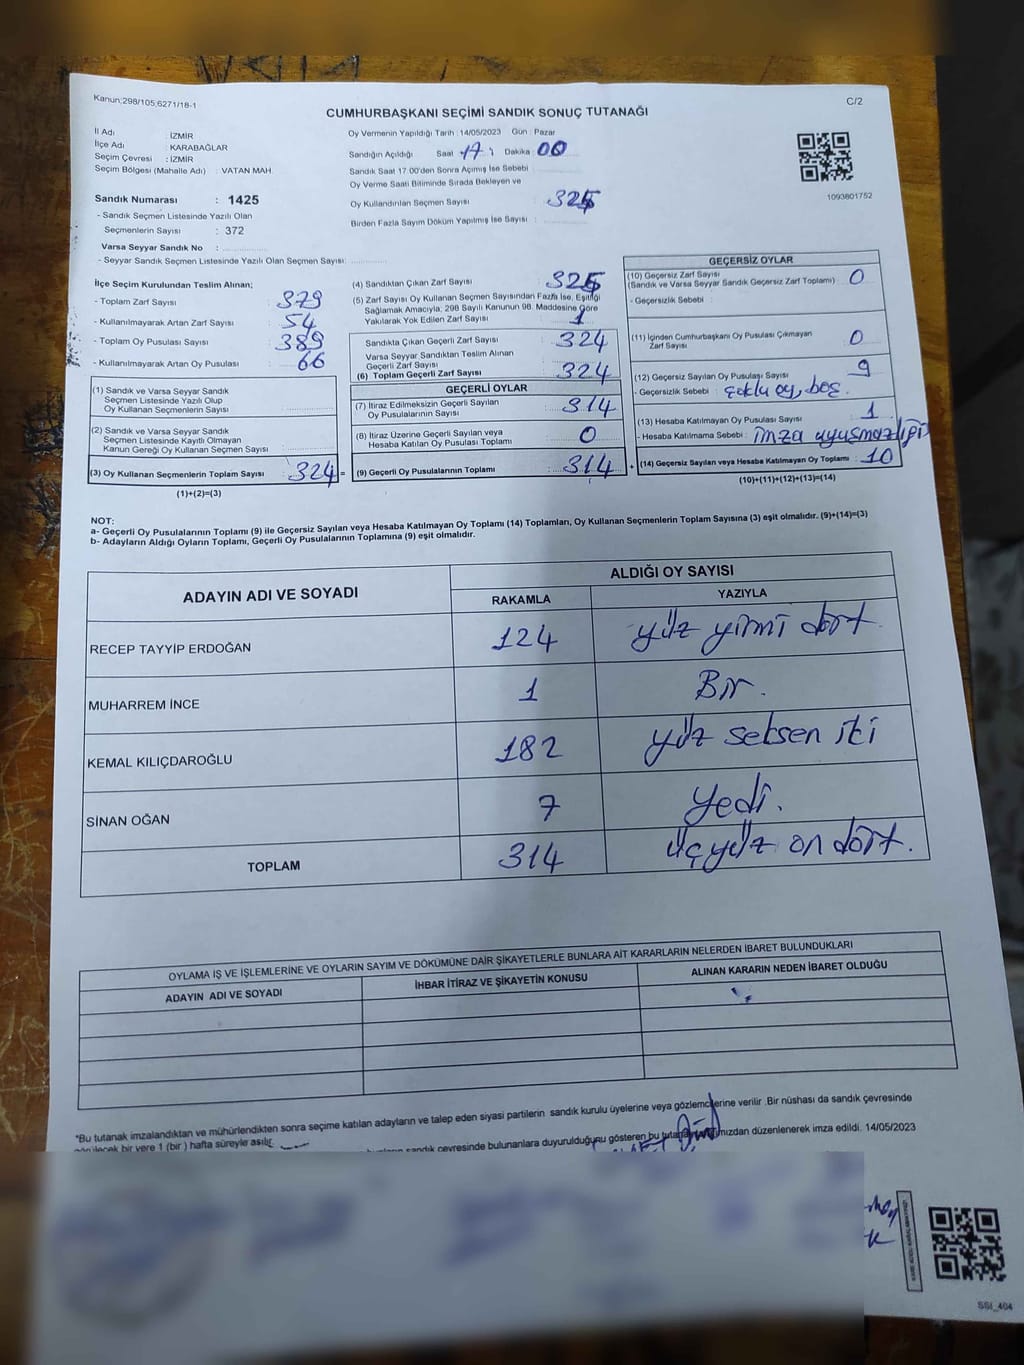 Kanun:298/105,6271/18-1
C/2
CUMHURBAŞKANI SEÇİMİ SANDIK SONUÇ TUTANAĞI
İl Adı : İZMİR
İlçe Adı : KARABAĞLAR
Seçim Çevresi : İZMİR
Seçim Bölgesi (Mahalle Adı) : VATAN MAH.
Oy Vermenin Yapıldığı Tarih : 14/05/2023 Gün : Pazar
Sandığın Açıldığı Saat : 17 Dakika : 00
Sandık Saat 17.00'den Sonra Açımış İse Sebebi :
Oy Verme Saati Bitiminde Sırada Bekleyen ve
Oy Kullandırılan Seçmen Sayısı
Birden Fazla Sayım Döküm Yapılmış İse Sayısı :
1093801752
Sandık Numarası : 1425
- Sandık Seçmen Listesinde Yazılı Olan
Seçmenlerin Sayısı : 372
Varsa Seyyar Sandık No :
- Seyyar Sandık Seçmen Listesinde Yazılı Olan Seçmen Sayısı:
İlçe Seçim Kurulundan Teslim Alınan;
- Toplam Zarf Sayısı : 379
- Kullanılmayarak Artan Zarf Sayısı : 54
- Toplam Oy Pusulası Sayısı : 389
- Kullanılmayarak Artan Oy Pusulası : 66
(1) Sandık ve Varsa Seyyar Sandık
Seçmen Listesinde Yazılı Olup
Oy Kullanan Seçmenlerin Sayısı :
(2) Sandık ve Varsa Seyyar Sandık
Seçmen Listesinde Kayıtlı Olmayan
Kanun Gereği Oy Kullanan Seçmen Sayısı :
(3) Oy Kullanan Seçmenlerin Toplam Sayısı : 324 =
(1)+(2)=(3)
(4) Sandıktan Çıkan Zarf Sayısı :
(5) Zarf Sayısı Oy Kullanan Seçmen Sayısından Fazla İse, Eşitliği
Sağlamak Amacıyla, 298 Sayılı Kanunun 98. Maddesine Göre
Yakılarak Yok Edilen Zarf Sayısı : 1
Sandıkta Çıkan Geçerli Zarf Sayısı : 324
Varsa Seyyar Sandıktan Teslim Alınan
Geçerli Zarf Sayısı
(6) Toplam Geçerli Zarf Sayısı : 324
GEÇERLİ OYLAR
(7) İtiraz Edilmeksizin Geçerli Sayılan
Oy Pusulalarının Sayısı : 314
(8) İtiraz Üzerine Geçerli Sayılan veya
Hesaba Katılan Oy Pusulası Toplamı : 0
(9) Geçerli Oy Pusulalarının Toplamı : 314 +
GEÇERSİZ OYLAR
(10) Geçersiz Zarf Sayısı
(Sandık ve Varsa Seyyar Sandık Geçersiz Zarf Toplamı) : 0
- Geçersizlik Sebebi :
(11) İçinden Cumhurbaşkanı Oy Pusulası Çıkmayan
Zarf Sayısı : 0
(12) Geçersiz Sayılan Oy Pusulası Sayısı : 9
- Geçersizlik Sebebi : çoklu oy, boş.
(13) Hesaba Katılmayan Oy Pusulası Sayısı : 1
- Hesaba Katılmama Sebebi : imza uyuşmazlığı
(14) Geçersiz Sayılan veya Hesaba Katılmayan Oy Toplamı : 10
(10)+(11)+(12)+(13)=(14)
NOT:
a- Geçerli Oy Pusulalarının Toplamı (9) ile Geçersiz Sayılan veya Hesaba Katılmayan Oy Toplamı (14) Toplamları, Oy Kullanan Seçmenlerin Toplam Sayısına (3) eşit olmalıdır. (9)+(14)=(3)
b- Adayların Aldığı Oyların Toplamı, Geçerli Oy Pusulalarının Toplamına (9) eşit olmalıdır.
ADAYIN ADI VE SOYADI
ALDIĞI OY SAYISI
RAKAMLA YAZIYLA
RECEP TAYYİP ERDOĞAN 124 yüz yirmi dört.
MUHARREM İNCE 1 Bir.
KEMAL KILIÇDAROĞLU 182 yüz seksen iki
SİNAN OĞAN 7 Yedi.
TOPLAM 314 üçyüz on dört.
OYLAMA İŞ VE İŞLEMLERİNE VE OYLARIN SAYIM VE DÖKÜMÜNE DAİR ŞİKAYETLERLE BUNLARA AİT KARARLARIN NELERDEN İBARET BULUNDUKLARI
ADAYIN ADI VE SOYADI İHBAR İTİRAZ VE ŞİKAYETİN KONUSU ALINAN KARARIN NEDEN İBARET OLDUĞU
*Bu tutanak imzalandıktan ve mühürlendikten sonra seçime katılan adayların ve talep eden siyasi partilerin sandık kurulu üyelerine veya gözlemcilerine verilir .Bir nüshası da sandık çevresinde
görülecek bir yere 1 (bir ) hafta süreyle asılır.
sandık çevresinde bulunanlara duyurulduğunu gösteren bu tutanak düzenlenerek imza edildi. 14/05/2023
SSI_404